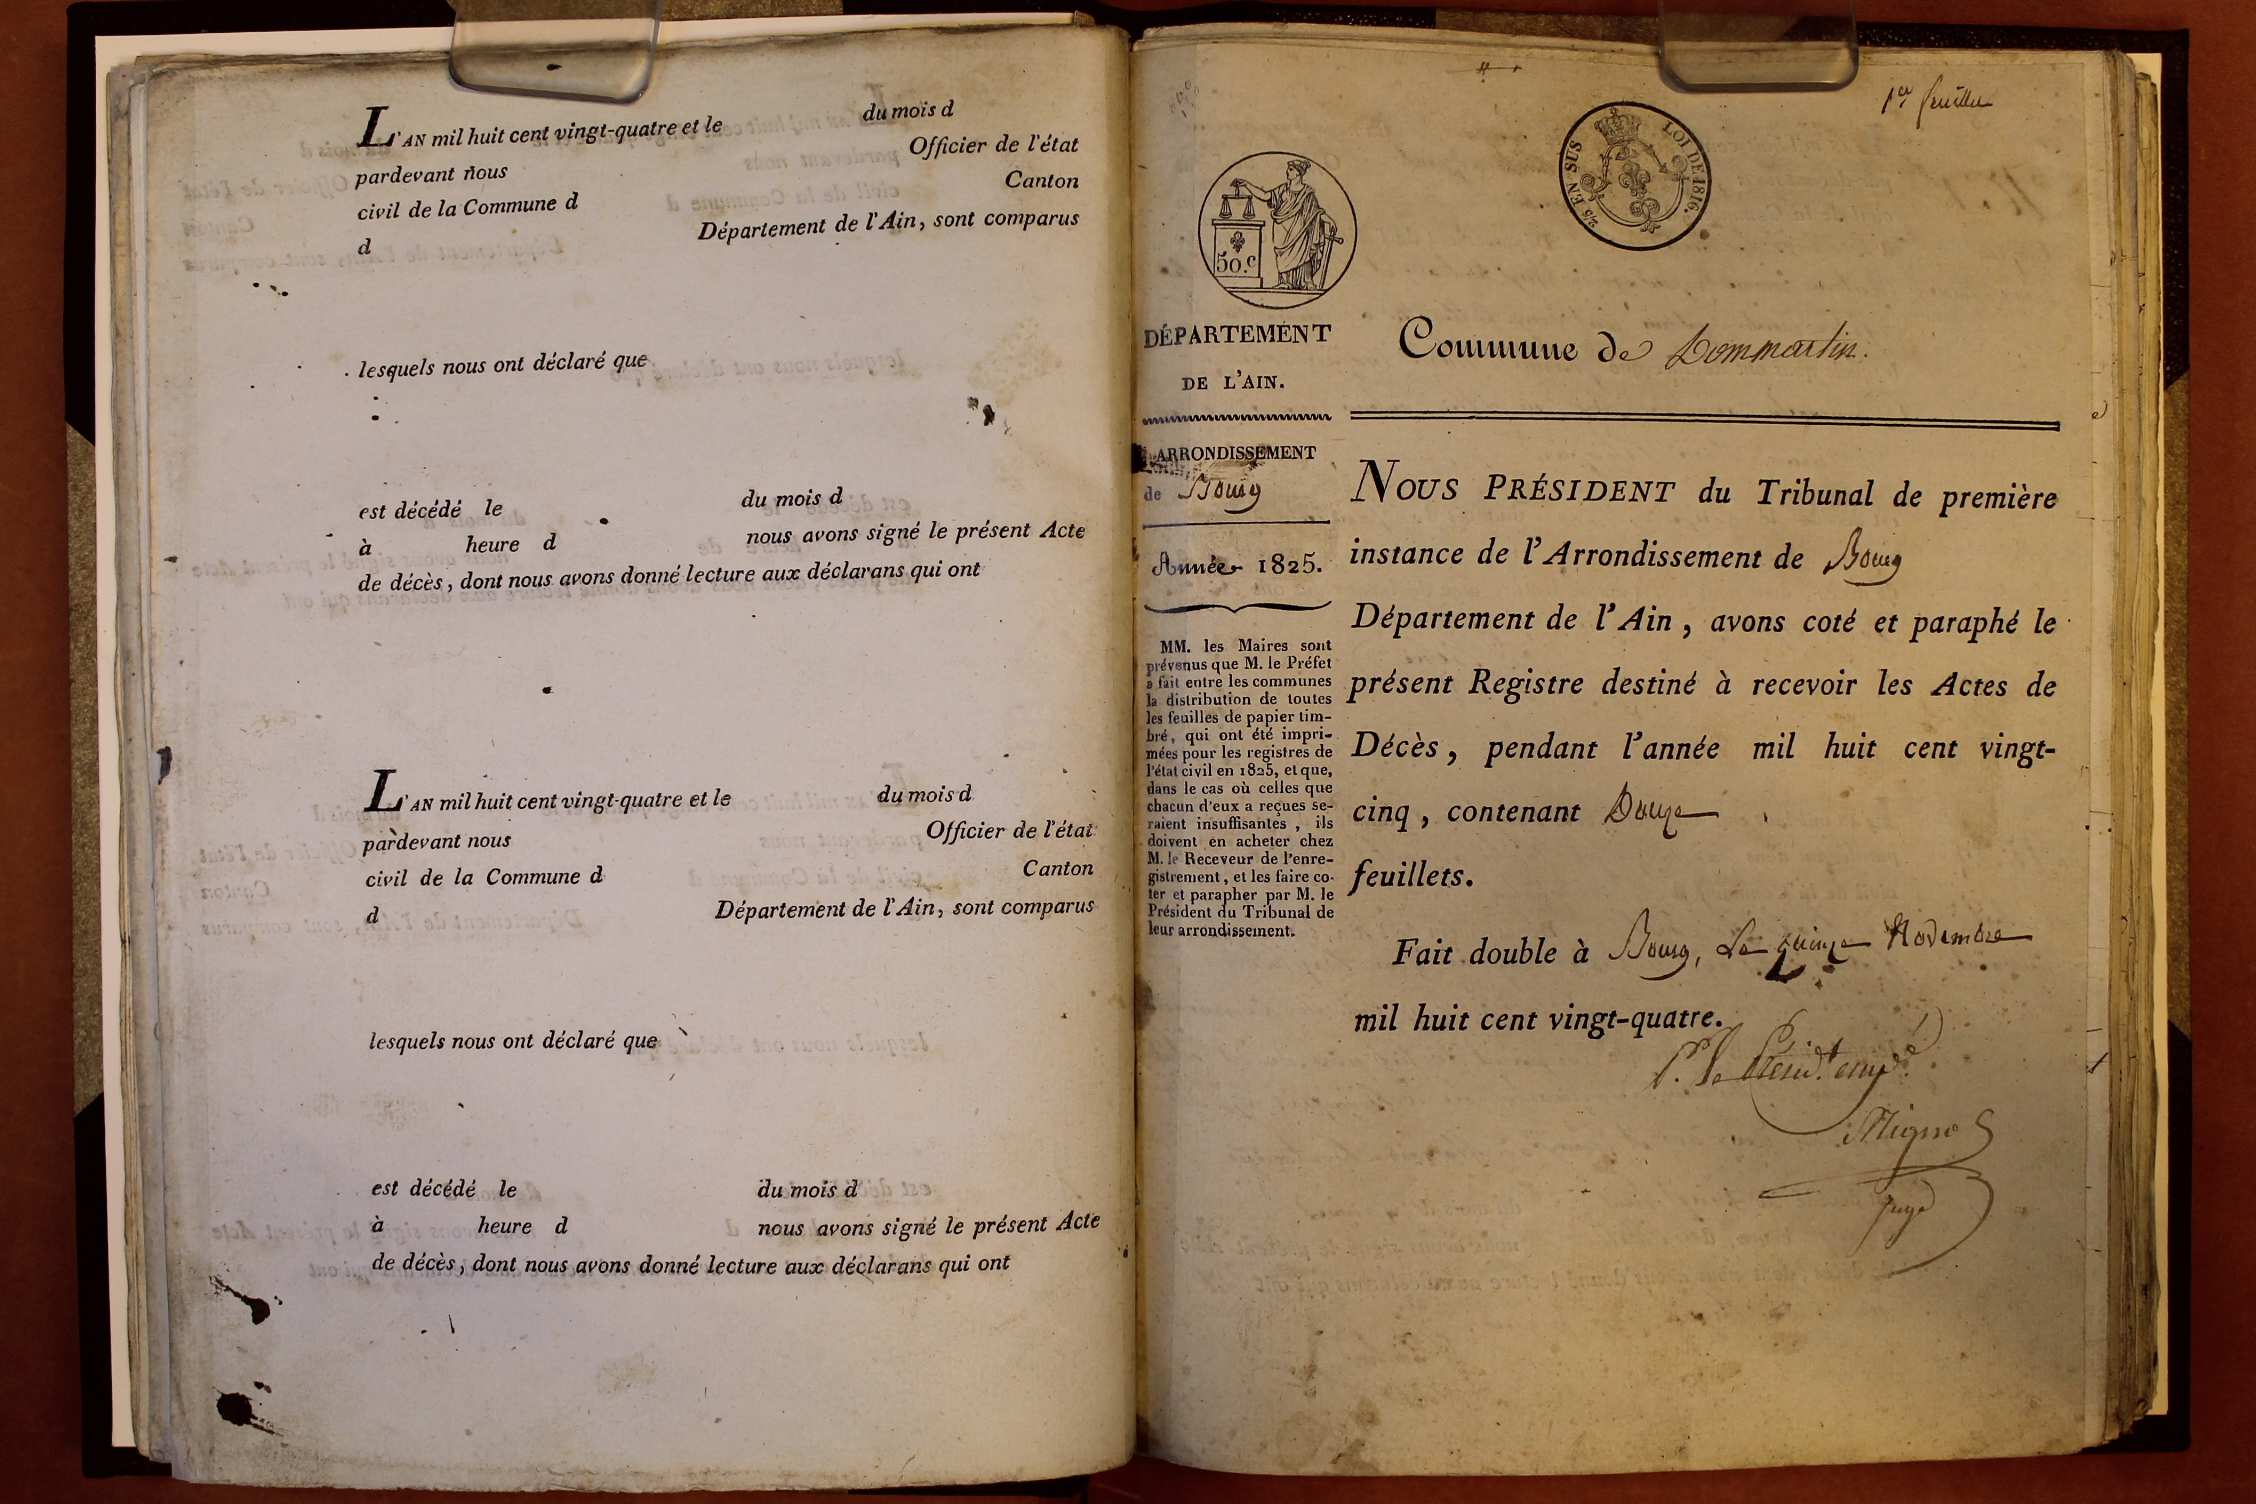 L'AN mil huit cent vingt-quatre et le du mois d
pardevant nous Officier de l'état
civil de la Commune d Canton
d Département de l'Ain, sont comparus
lesquels nous ont déclaré que
est décédé le du mois d
à heure d nous avons signé le présent Acte
de décès, dont nous avons donné lecture aux déclarans qui ont
L'AN mil huit cent vingt-quatre et le du mois d
pardevant nous Officier de l'état
civil de la Commune d Canton
d Département de l'Ain, sont comparus
lesquels nous ont déclaré que
est décédé le du mois d
à heure d nous avons signé le présent Acte
de décès, dont nous avons donné lecture aux déclarans qui ont
1er feuillet
2/5 EN SUS LOI DE 1816.
50.c
DÉPARTEMENT
DE L'AIN.
ARRONDISSEMENT
de Bourg
Année 1825.
MM. les Maires sont
prévenus que M. le Préfet
a fait entre les communes
la distribution de toutes
les feuilles de papier tim-
bré, qui ont été impri-
mées pour les registres de
l'état civil en 1825, et que,
dans le cas où celles que
chacun d'eux a reçues se-
raient insuffisantes, ils
doivent en acheter chez
M. le Receveur de l'enre-
gistrement, et les faire co-
ter et parapher par M. le
Président du Tribunal de
leur arrondissement.
Commune de Dommartin.
NOUS PRÉSIDENT du Tribunal de première
instance de l'Arrondissement de Bourg
Département de l'Ain, avons coté et paraphé le
présent Registre destiné à recevoir les Actes de
Décès, pendant l'année mil huit cent vingt-
cinq, contenant Douze
feuillets.
Fait double à Bourg, Le quinze Novembre
mil huit cent vingt-quatre.
P. le Présid.t empé.é
juge